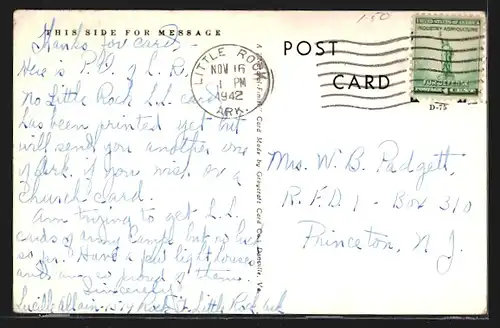 THIS SIDE FOR MESSAGE
Thanks for cards.
Here is P.O. of L. R.
No Little Rock L.L. card
has been printed yet but
will send you another one
of Ark. if you wish or a
Church card.
Am trying to get L.L.
cards of army Camps but no luck
so far. Have a few lighthouses
and am proud of them.
Sincerely
Lucille Allain - Rock St. Little Rock Ark
A Card Made by Graycraft Card Co., Danville, Va.
LITTLE ROCK
NOV 16
1 PM
1942
ARK.
150
POST
CARD
UNITED STATES OF AMERICA
INDUSTRY AGRICULTURE
FOR DEFENSE
D-75
Mrs. W. B. Padgett,
R.F.D. 1 - Box 310
Princeton, N. J.